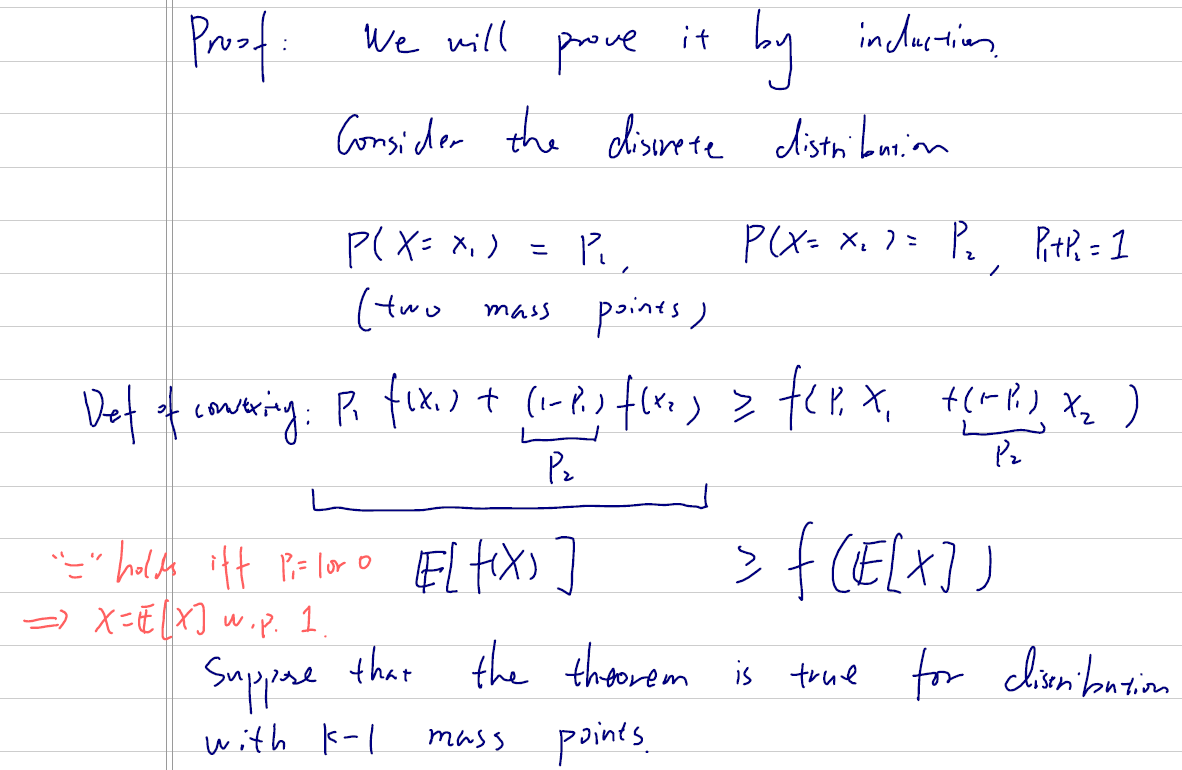 Proof: We will prove it by induction.
Consider the discrete distribution
P(X = x₁) = P₁, P(X = x₂) = P₂, P₁+P₂ = 1
(two mass points)
Def of convexity: P₁ f(x₁) + (1-P₁) f(x₂) ≥ f(P₁ X₁ + (1-P₁) X₂)
P₂ P₂
"=" holds iff P₁=1 or 0 𝔼[f(X)] ≥ f(𝔼[X])
⇒ X=𝔼[X] w.p. 1.
Suppose that the theorem is true for distribution
with k-1 mass points.